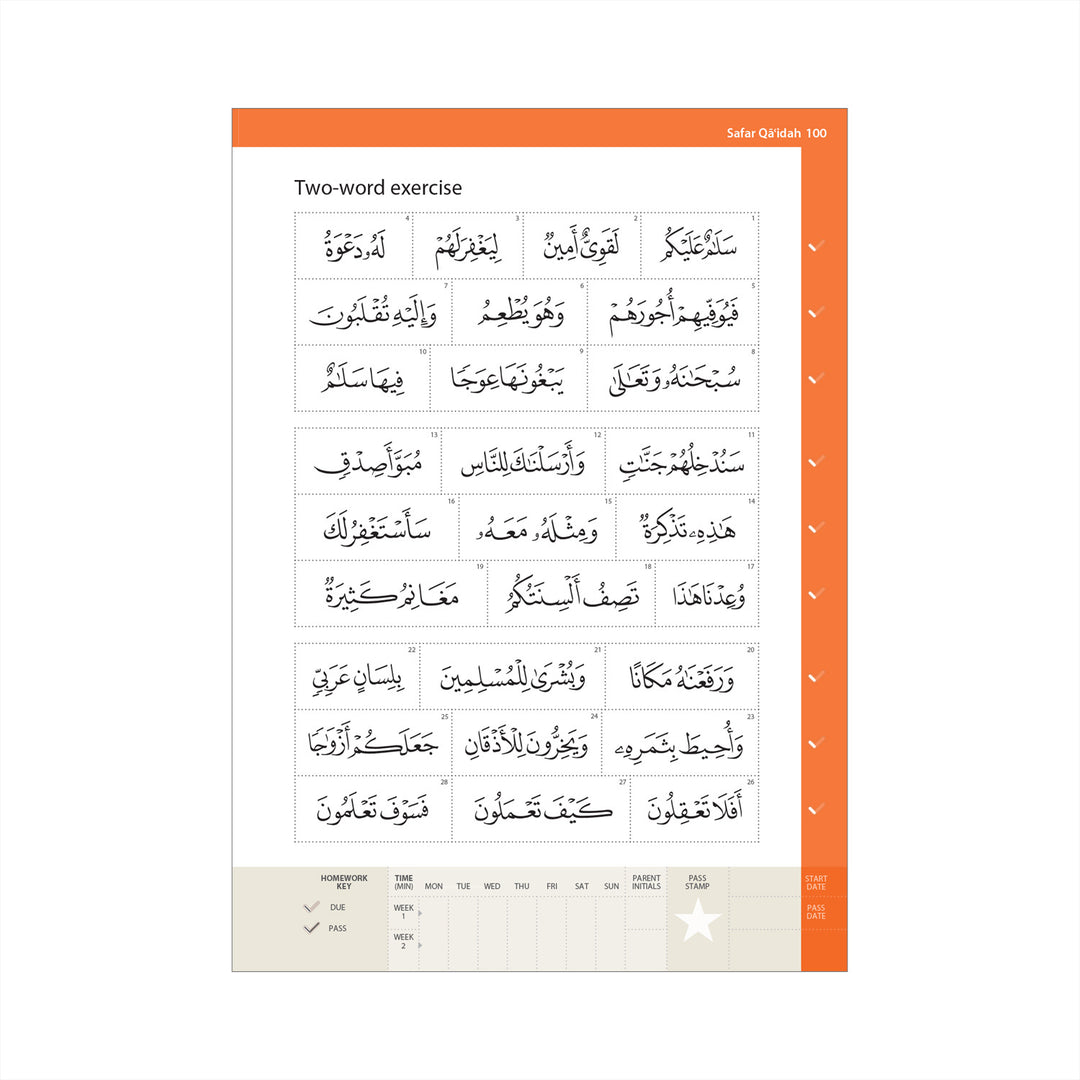 Safar Qā'idah 100
Two-word exercise
1 سَلَٰمٌ عَلَيْكُمْ 2 لَقَوِىٌّ أَمِينٌ 3 لِيَغْفِرَ لَهُمْ 4 لَهُۥ دَعْوَةٌ
5 فَيُوَفِّيهِمْ أُجُورَهُمْ 6 وَهُوَ يُطْعِمُ 7 وَإِلَيْهِ تُقْلَبُونَ
8 سُبْحَٰنَهُۥ وَتَعَٰلَىٰ 9 يَبْغُونَهَا عِوَجًا 10 فِيهَا سَلَٰمٌ
11 سَنُدْخِلُهُمْ جَنَّٰتٍ 12 وَأَرْسَلْنَٰكَ لِلنَّاسِ 13 مُبَوَّأَ صِدْقٍ
14 هَٰذِهِۦ تَذْكِرَةٌ 15 وَمِثْلَهُۥ مَعَهُۥ 16 سَأَسْتَغْفِرُ لَكَ
17 وُعِدْنَا هَٰذَا 18 تَصِفُ أَلْسِنَتُكُمُ 19 مَغَانِمُ كَثِيرَةٌ
20 وَرَفَعْنَٰهُ مَكَانًا 21 وَبُشْرَىٰ لِلْمُسْلِمِينَ 22 بِلِسَانٍ عَرَبِىٍّ
23 وَأُحِيطَ بِثَمَرِهِۦ 24 وَيَخِرُّونَ لِلْأَذْقَانِ 25 جَعَلَكُمْ أَزْوَٰجًا
26 أَفَلَا تَعْقِلُونَ 27 كَيْفَ تَعْمَلُونَ 28 فَسَوْفَ تَعْلَمُونَ
HOMEWORK KEY
DUE
PASS
TIME (MIN) MON TUE WED THU FRI SAT SUN PARENT INITIALS PASS STAMP START DATE
WEEK 1 PASS DATE
WEEK 2